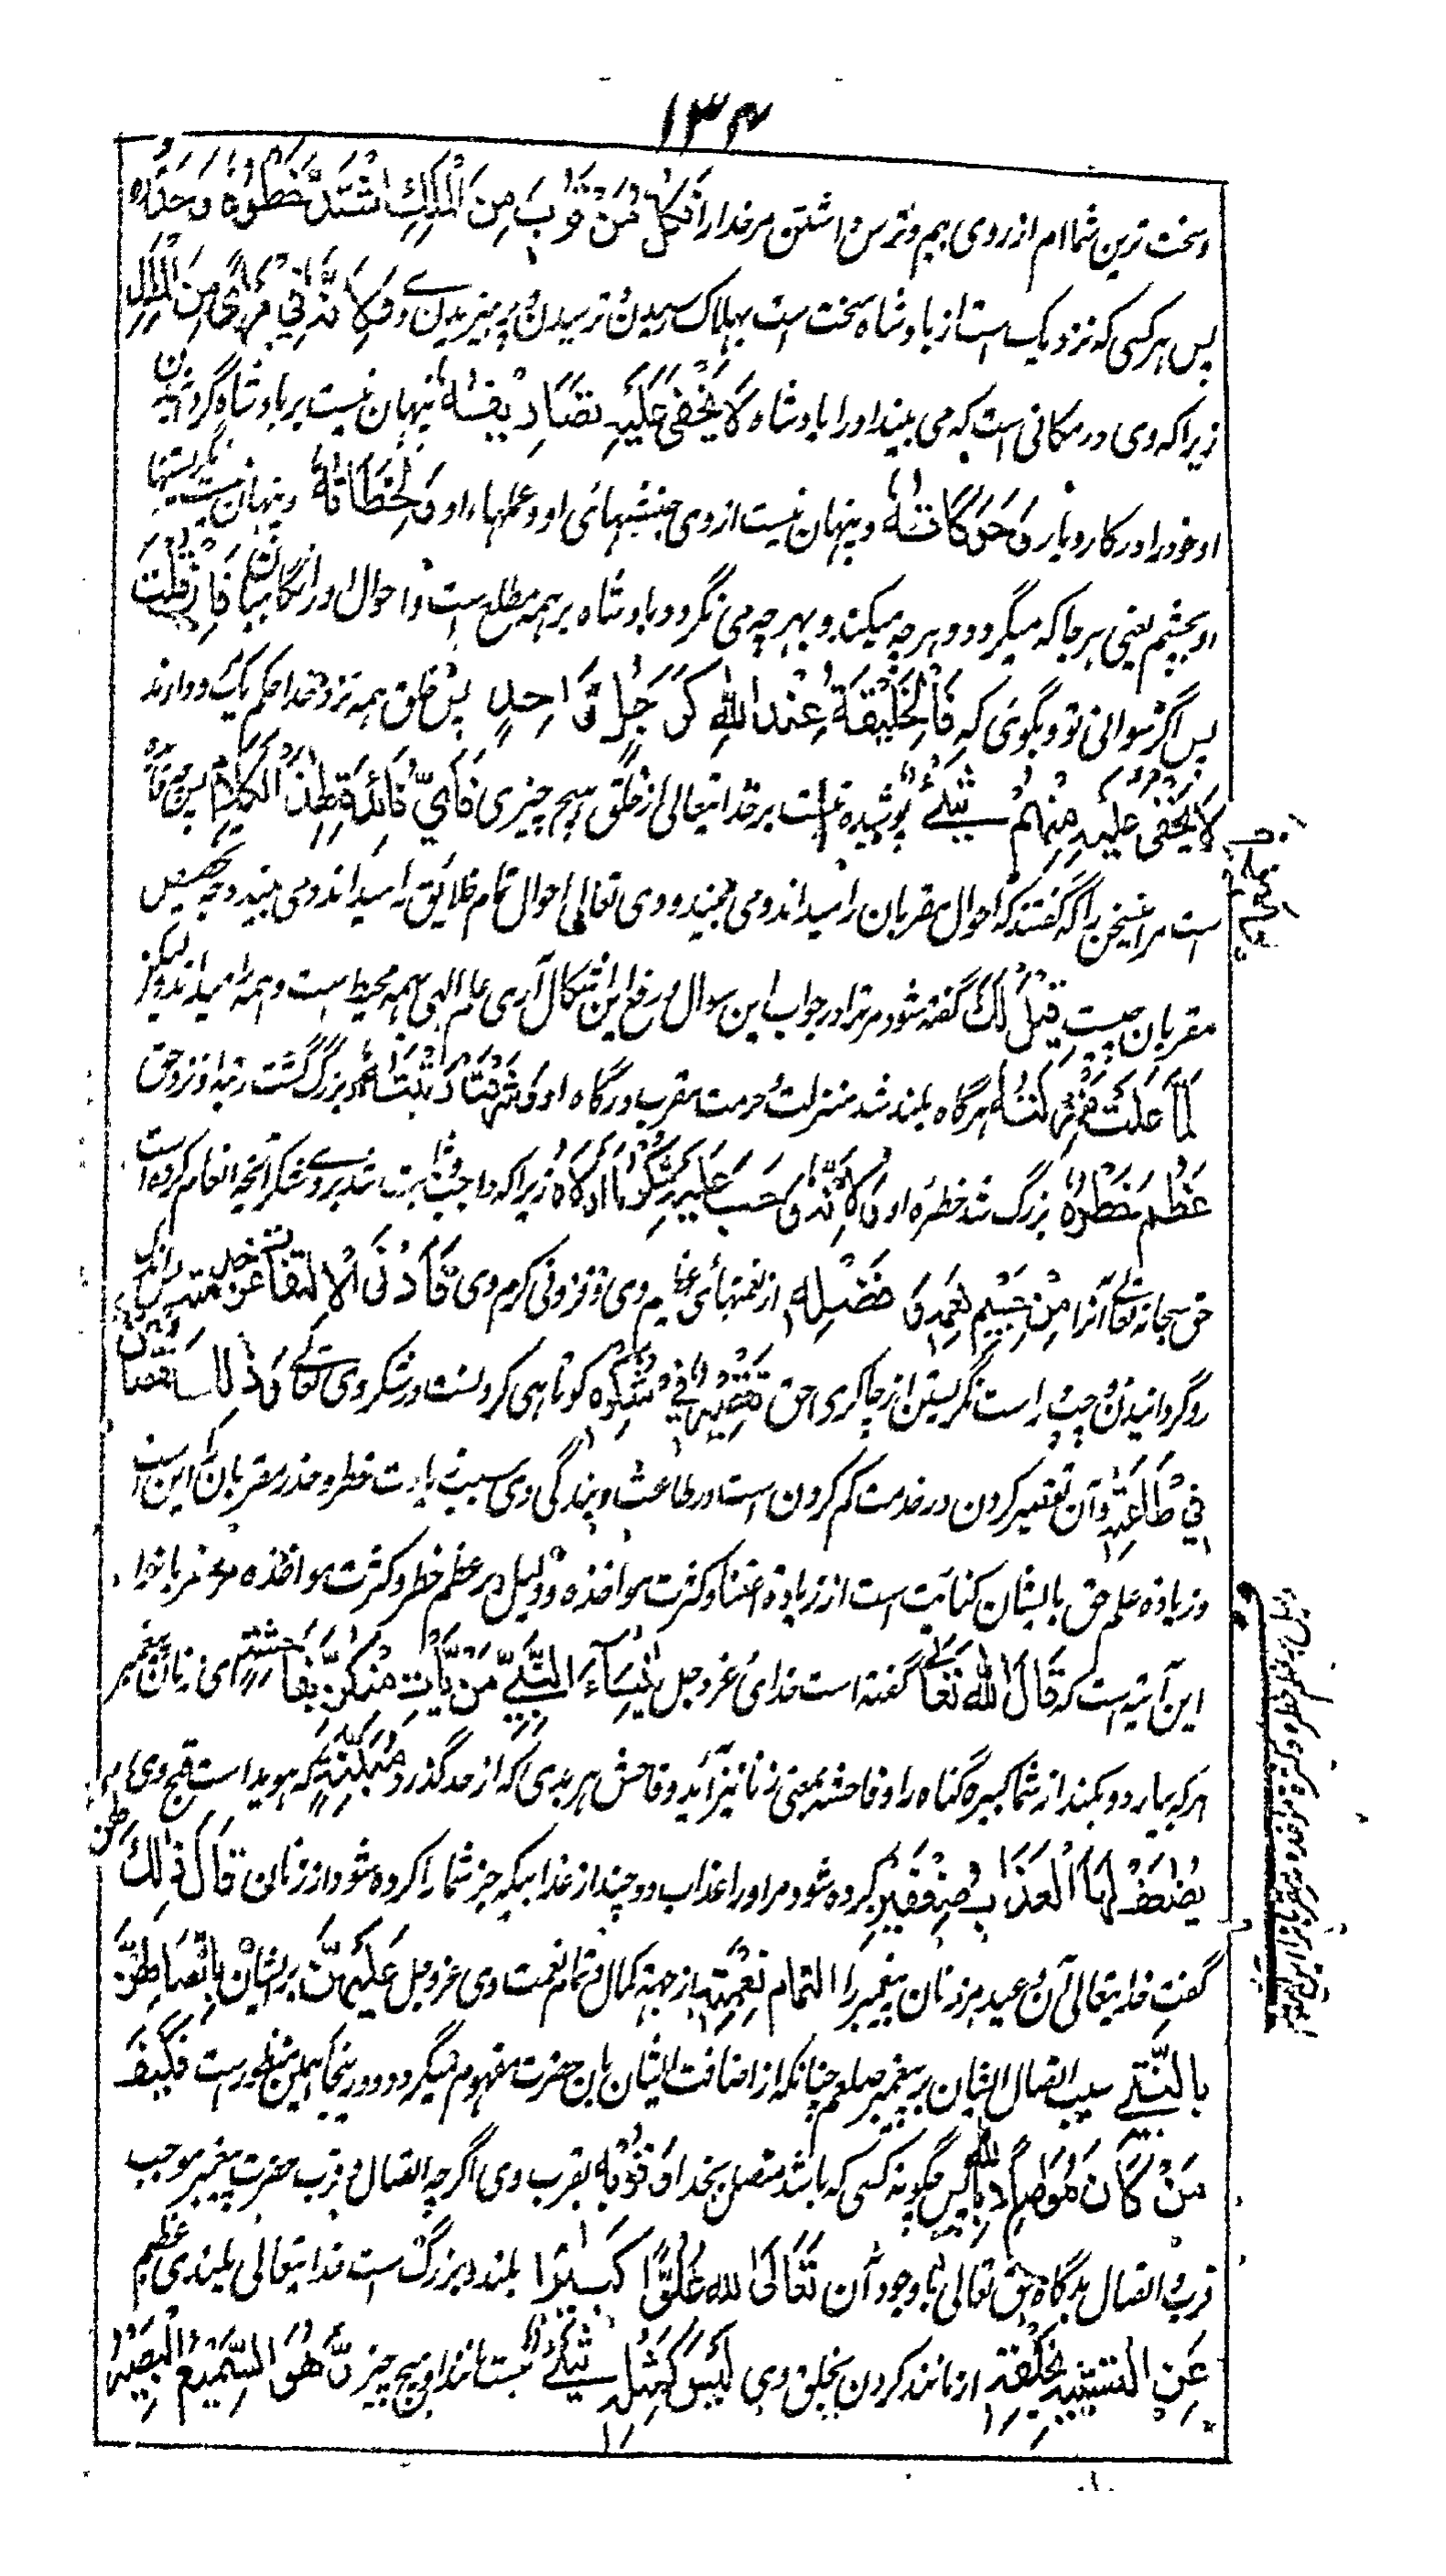 ۱۳۴
و سخت ترین شماام از روی بیم و ترس داشتن مر خدا را فَكُلُّ مَنْ قَرُبَ مِنَ الْمَلِكِ اشْتَدَّ خَطَرُهُ وَحَذَرُهُ
پس هر کسی که نزدیک است از بادشاه سخت است بهلاک رسیدن و ترسیدن و پرهیزیدن وی لِاَنَّهُ فِیْ مَرْاًی مِنَ الْمَلِكِ
زیرا که وی در مکانی است که می بیند او را بادشاه لَا یَخْفٰی عَلَیْهِ تَصَارِیْفُهُ پنهان نیست بر بادشاه گردانیدن
او خود را در کاروبار وَحَرَكَاتُهُ و پنهان نیست از وی جنبشهای او و عملهاء او وَلَحَظَاتُهُ و پنهان نیست نگریستنها
او بچشم یعنی هر جا که میگردد و هر چه میکند و بهر چه می نگرد و بادشاه بر همه مطلع است و احوال او را نگاهبان فَاِنْ قُلْتَ
پس اگر سوال کنی تو و بگوئی که فَالْخَلِیْقَةُ عِنْدَ اللّٰهِ كَرَجُلٍ وَاحِدٍ پس خلق همه نزد خدا حکم یک دارند
لَا یَخْفٰی عَلَیْهِ مِنْهُمْ شَیْءٌ پوشیده نیست بر خدایتعالی از خلق هیچ چیزی فَاَیُّ فَائِدَةٍ لِهٰذَا الْكَلَامِ پس چه فائده
است مر این سخن را که گفتند که احوال مقربان را میداند و می بیند و وی تعالی احوال تمام خلایق را میداند و می بیند وجه تخصیص
مقربان چیست قِیْلَ لَكَ گفته شود مر ترا در جواب این سوال و رفع این اشکال آری علم الهی بهمه محیط است و همه را میداند ولیکن
لَمَّا عَلَتْ مَنْزِلَتُهُ هرگاه بلند شد منزلت و حرمت مقرب درگاه او وَشَرُفَتْ رُتْبَتُهُ و بزرگ گشت رتبه او نزد حق
عَظُمَ خَطَرُهُ بزرگ شد خطره او لِاَنَّهُ وَجَبَ عَلَیْهِ شُكْرُ مَا اَوْلَاهُ زیرا که واجب و ثابت شد بر وی شکر آنچه انعام کرده است
حق سبحانه تعالی آنرا مِنْ جَسِیْمِ نِعَمِهٖ وَفَضْلِهٖ از نعمتهای عظیم وی و فزونی کرم وی فَاَدْنَی الْاِلْتِفَاتِ عَنْ خِدْمَتِهٖ پس اندک
روگردانیدن و چپ و راست نگریستن از چاکری حق تَقْصِیْرٌ فِیْ شُكْرِهٖ کوتاهی کردنست در شکر وی تعالی وَذٰلِكَ نُقْصَانٌ
فِیْ طَاعَتِهٖ و آن تقصیر کردن در خدمت کم کردن است در طاعت و بندگی وی سبب زیادت خطر و حذر مقربان که این است
و زیاده علم حق بایشان کنایت است از زیادة اعتنا و کثرت مواخذه و دلیل بر عظم خطر و کثرت مواخذه مر مقربانرا
این آیته است که قَالَ اللّٰهُ تَعَالٰی گفته است خدای عزوجل یٰنِسَآءَ النَّبِیِّ مَنْ یَّاْتِ مِنْكُنَّ بِفَاحِشَةٍ ای زنان پیغمبر
هر که بیارد و بکند از شما کبیره گناه را و فاحشه بمعنی زنا نیز آید و فاحش هر بدی که از حد گذرد مُبَیِّنَةٍ که هویداست قبح وی
یُضٰعَفْ لَهَا الْعَذَابُ ضِعْفَیْنِ کرده شود مر او را عذاب دو چند از عذابیکه جز شما را کرده شود از زنان قَالَ ذٰلِكَ لَهُنَّ
گفت خدایتعالی آن وعید مر زنان پیغمبر را لِتَمَامِ نِعْمَتِهٖ از جهة کمال و تمام نعمت وی عزوجل عَلَیْهِنَّ بر ایشان بِاتِّصَالِهِنَّ
بِالنَّبِیِّ سبب اتصال ایشان بر پیغمبر صلعم چنانکه از اضافت ایشان بآن حضرت مفهوم میگردد و در ینجا همین منظور ست فَكَیْفَ
مَنْ كَانَ مُوَاصِلًا بِاللّٰهِ پس چگونه کسی که باشد متصل بخدا وَقُرْبِهٖ بقرب وی اگرچه اتصال و قرب حضرت پیغمبر موجب
قرب و اتصال بدرگاه حق تعالی با وجود آن تَعَالَی اللّٰهُ عُلُوًّا كَبِیْرًا بلند و بزرگ ست خدایتعالی بلندی عظیم
عَنِ التَّشْبِیْهِ بِخَلْقِهٖ از مانند کردن بخلق وی لَیْسَ كَمِثْلِهٖ شَیْءٌ نیست مانند او هیچ چیز وَّهُوَ السَّمِیْعُ الْبَصِیْرُ